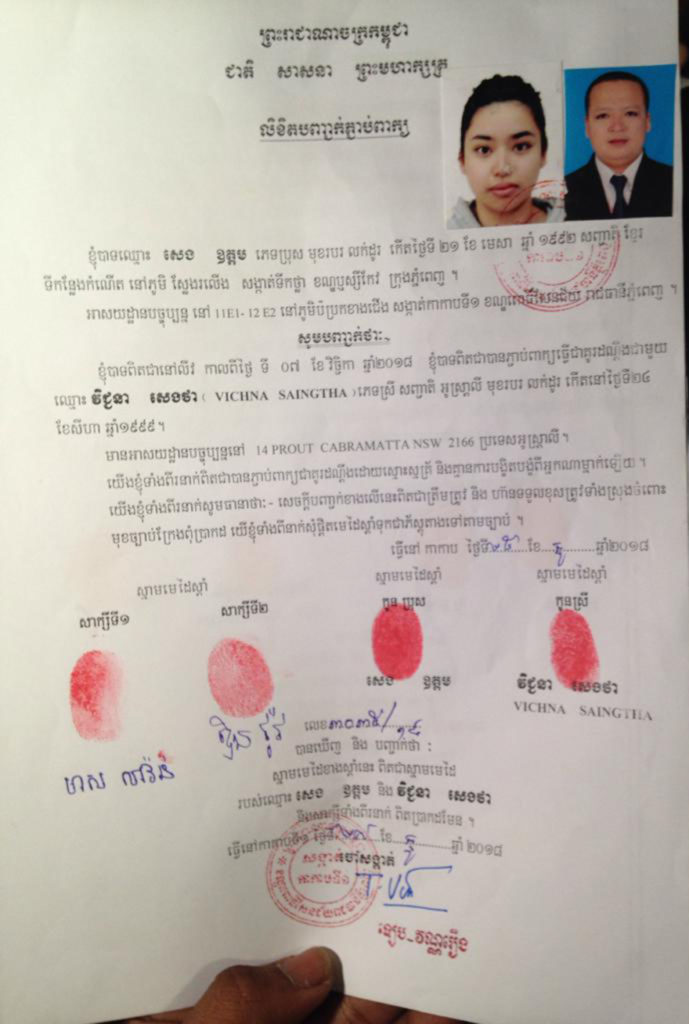 ព្រះរាជាណាចក្រកម្ពុជា
ជាតិ សាសនា ព្រះមហាក្សត្រ
លិខិតបញ្ជាក់ភ្ជាប់ពាក្យ
ខ្ញុំបាទឈ្មោះ សេង ឧត្តម ភេទប្រុស មុខរបរ លក់ដូរ កើតថ្ងៃទី ២១ ខែ មេសា ឆ្នាំ ១៩៩២ សញ្ជាតិ ខ្មែរ
ទីកន្លែងកំណើត នៅភូមិ ស្លែងរលើង សង្កាត់ទឹកថ្លា ខណ្ឌឫស្សីកែវ ក្រុងភ្នំពេញ ។
អាសយដ្ឋានបច្ចុប្បន្ន នៅ 11E1- 12 E2 នៅភូមិប៉ប្រកខាងជើង សង្កាត់កាកាបទី១ ខណ្ឌពោធិ៍សែនជ័យ រាជធានីភ្នំពេញ ។
សូមបញ្ជាក់ថា:~
ខ្ញុំបាទពិតជានៅលីវ កាលពីថ្ងៃ ទី ០៧ ខែ វិច្ឆិកា ឆ្នាំ២០១៨ ខ្ញុំបាទពិតជាបានភ្ជាប់ពាក្យធ្វើជាគូរដណ្តឹងជាមួយ
ឈ្មោះ វិជ្ជនា សេងថា ( VICHNA SAINGTHA ) ភេទស្រី សញ្ជាតិ អូស្ត្រាលី មុខរបរ លក់ដូរ កើតនៅថ្ងៃទី២៤
ខែសីហា ឆ្នាំ១៩៩៩។
មានអាសយដ្ឋានបច្ចុប្បន្ននៅ 14 PROUT CABRAMATTA NSW 2166 ប្រទេសអូស្ត្រាលី ។
យើងខ្ញុំទាំងពីរនាក់ពិតជាបានភ្ជាប់ពាក្យជាគូរដណ្តឹងដោយស្មោះស្ម័គ្រ និងគ្មានការបង្ខិតបង្ខំពីអ្នកណាម្នាក់ឡើយ ។
យើងខ្ញុំទាំងពីរនាក់សូមធានាថា:- សេចក្តីបញ្ជាក់ខាងលើនេះពិតជាត្រឹមត្រូវ និង ហ៊ានទទួលខុសត្រូវទាំងស្រុងចំពោះ
មុខច្បាប់ ក្រែងពុំប្រាកដ យើខ្ញុំទាំងពីនាក់សុំផ្តិតមេដៃស្តាំទុកជាភ័ស្តុតាងទៅតាមច្បាប់ ។
ធ្វើនៅ កាកាប ថ្ងៃទី ខែ ធ្នូ ឆ្នាំ២០១៨
ស្នាមមេដៃស្តាំ ស្នាមមេដៃស្តាំ ស្នាមមេដៃស្តាំ
សាក្សីទី១ សាក្សីទី២ កូនប្រុស កូនស្រី
សេង ឧត្តម វិជ្ជនា សេងថា
VICHNA SAINGTHA
លេខ
បានឃើញ និង បញ្ជាក់ថា :
ស្នាមមេដៃខាងស្តាំនេះ ពិតជាស្នាមមេដៃ
របស់ឈ្មោះ សេង ឧត្តម និង វិជ្ជនា សេងថា
និងសាក្សីទាំងពីរនាក់ ពិតប្រាកដមែន ។
ធ្វើនៅកាកាបទី១ ថ្ងៃទី ខែ ធ្នូ ឆ្នាំ ២០១៨
សង្កាត់
កាកាបទី១